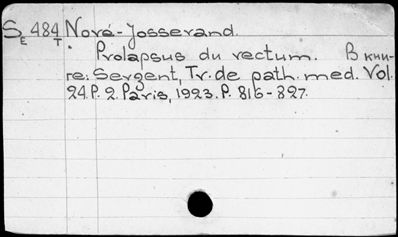 S 484 Nové-Josserand.
E T
Prolapsus du rectum. В кни-
ге: Sergent, Tr. de path. med. Vol.
24. P. 2. Paris, 1923. P. 816-827.